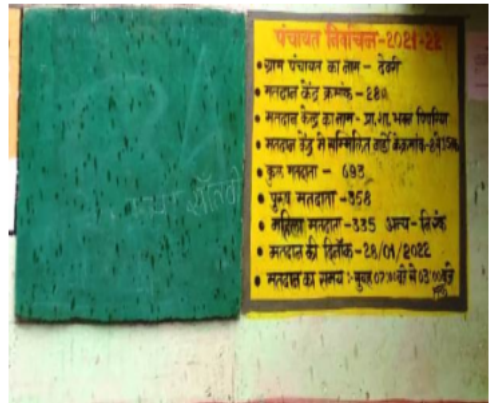 पंचायत निर्वाचन-2021-22
• ग्राम पंचायत का नाम - देवरी
• मतदान केंद्र क्रमांक -
• मतदान केन्द्र का नाम - प्रा.शा. भवन पिपरिया
• मतदान केंद्र में सम्मिलित वार्डो के क्रमांक-
• कुल मतदाता - 693
• पुरुष मतदाता -358
• महिला मतदाता -335 अन्य-निरंक
• मतदान की दिनाँक -28/01/2022
• मतदान का समय :- सुबह 07:00 बजे से 03:00 बजे